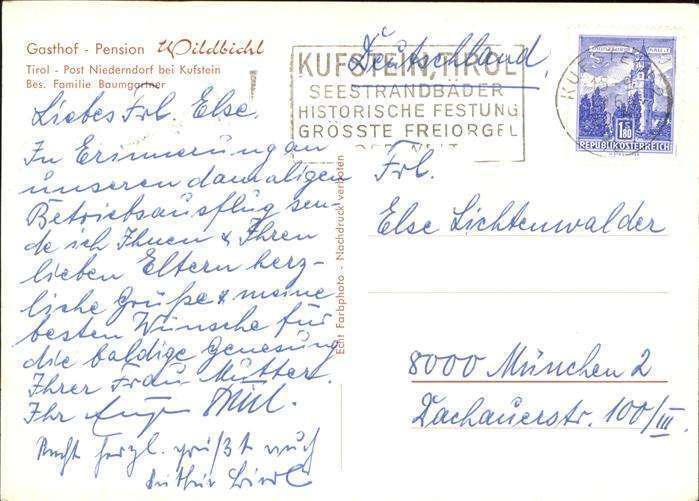 Gasthof - Pension Wildbichl
Tirol - Post Niederndorf bei Kufstein
Bes. Familie Baumgartner
Liebes Frl. Else.
In Erinnerung an
unseren damaligen
Betriebsausflug sen-
de ich Ihnen & Ihren
lieben Eltern herz-
liche Grüße & meine
besten Wünsche für
die baldige Genesung
Ihrer Frau Mutter.
Ihr Eugen
Recht herzl. grüßt auch
Echt Farbphoto - Nachdruck verboten
Deutschland
KUFSTEIN, TIROL
SEESTRANDBÄDER
HISTORISCHE FESTUNG
GRÖSSTE FREIORGEL
DER WELT
KUFSTEIN
1.80
REPUBLIK ÖSTERREICH
Frl.
Else Lichtenwalder
8000 München 2
Dachauerstr. 100/III.